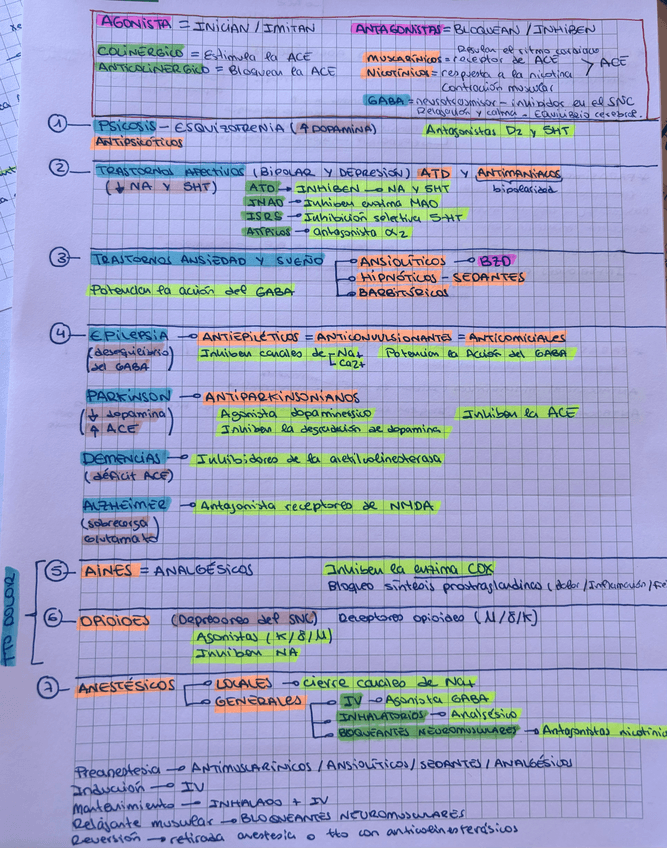 AGONISTA = INICIAN / IMITAN
ANTAGONISTAS = BLOQUEAN / INHIBEN
COLINÉRGICO = Estimula la ACE
ANTICOLINÉRGICO = Bloquean la ACE
Regulan el ritmo cardíaco
MUSCARÍNICOS = receptor de ACE
NICOTÍNICOS = respuesta a la nicotina > ACE
Contracción muscular
GABA = neurotrasmisor - inhibidor en el SNC
Relajación y calma - Equilibrio cerebral.
① PSICOSIS - ESQUIZOFRENIA (↑ DOPAMINA) Antagonistas D2 y 5HT
ANTIPSICÓTICOS
② TRASTORNOS AFECTIVOS (BIPOLAR Y DEPRESIÓN) ATD Y ANTIMANÍACOS
(↓ NA Y 5HT) bipolaridad
ATD → INHIBEN → NA Y 5HT
IMAO → Inhiben enzima MAO
ISRS → Inhibición selectiva 5-HT
ATÍPICOS → antagonista α2
③ TRASTORNOS ANSIEDAD Y SUEÑO → ANSIOLÍTICOS → BZD
→ HIPNÓTICOS - SEDANTES
Potencian la acción del GABA → BARBITÚRICOS
④ EPILEPSIA → ANTIEPILÉTICOS = ANTICONVULSIONANTES = ANTICOMICIALES
(desequilibrio del GABA) Inhiben canales de Na+ Ca2+ Potencian la Acción del GABA
PARKINSON → ANTIPARKINSONIANOS
(↓ dopamina Agonista dopaminérgico Inhiben la ACE
↑ ACE) Inhiben la degradación de dopamina
DEMENCIAS → Inhibidores de la acetilcolinesterasa
(déficit ACE)
ALZHEIMER → Antagonista receptores de NMDA
(sobrecarga
glutamato)
TTO DOLOR
⑤ AINES = ANALGÉSICOS Inhiben la enzima COX
Bloqueo síntesis prostaglandinas (dolor / Inflamación /
⑥ OPIOIDES (Depresores del SNC) Receptores opioides (μ/δ/κ)
Agonistas (κ/δ/μ)
Inhiben NA
⑦ ANESTÉSICOS → LOCALES → cierre canales de Na+
→ GENERALES → IV → Agonista GABA
→ INHALATORIOS → Analgésico
→ BLOQUEANTES NEUROMUSCULARES → Antagonistas
Preanestesia → ANTIMUSCARÍNICOS / ANSIOLÍTICOS / SEDANTES / ANALGÉSICOS
Inducción → IV
Mantenimiento → INHALADO + IV
Relajante muscular → BLOQUEANTES NEUROMUSCULARES
Reversión → retirada anestesia o tto con anticolinesterásicos